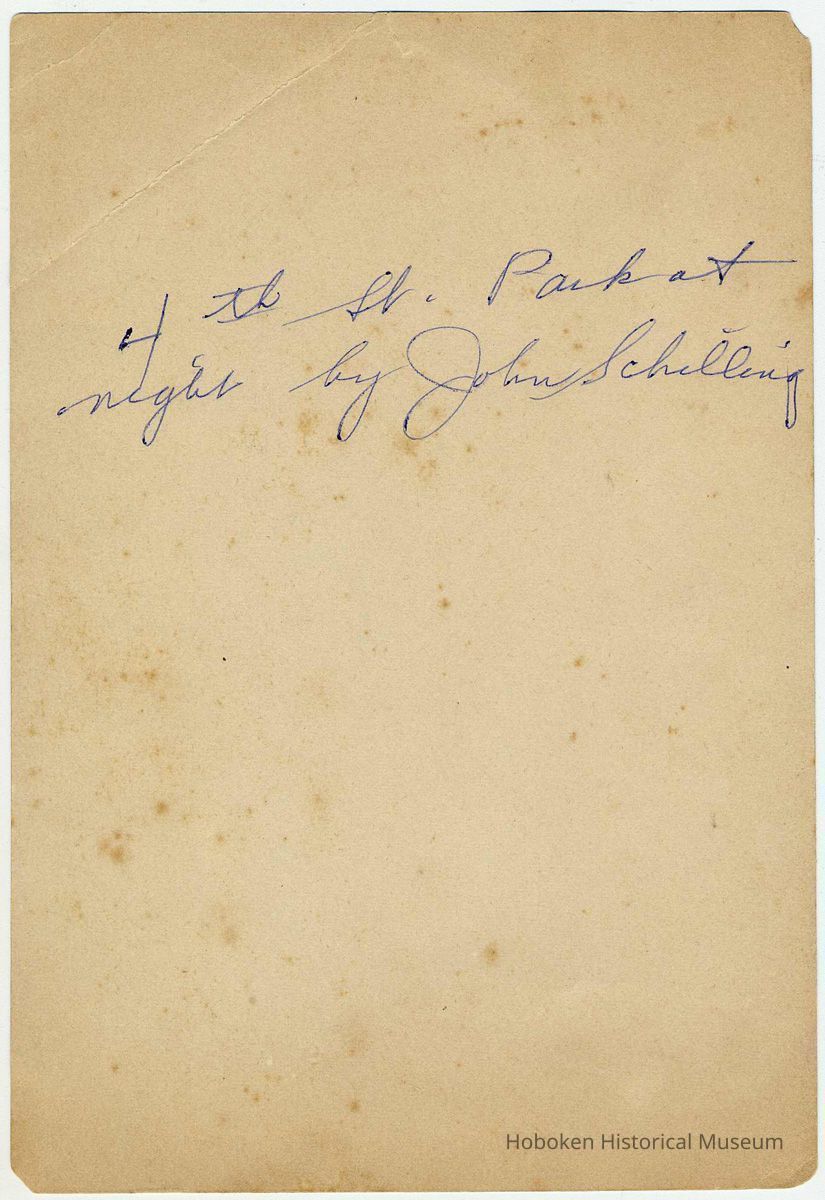 4th St. Park at
night by John Schilling
Hoboken Historical Museum